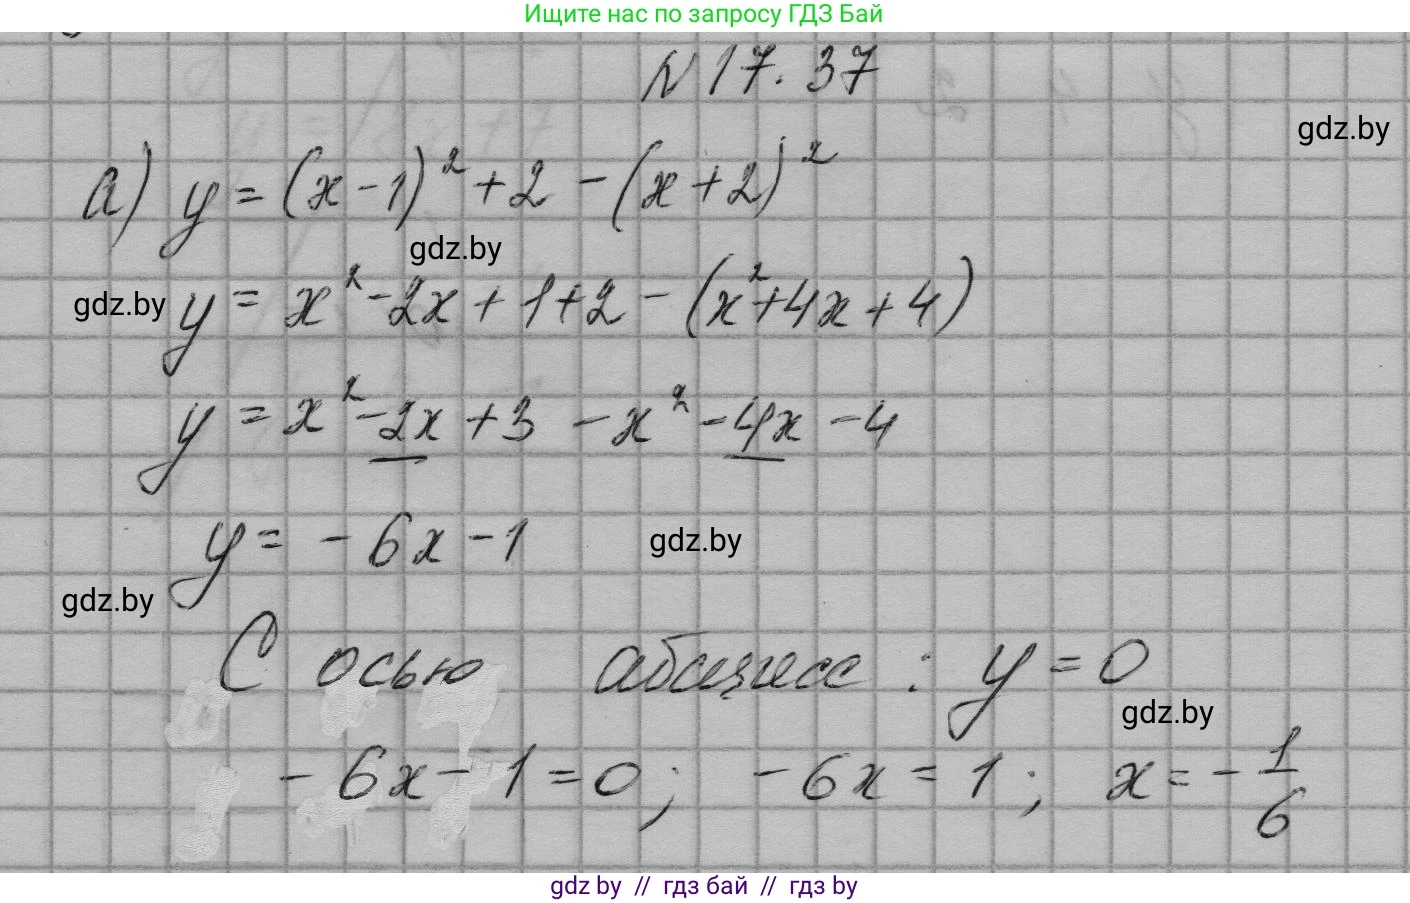 Ищите нас по запросу ГДЗ Бай
N 17.37
gdz.by
а) y = (x-1)² + 2 - (x+2)²
gdz.by
gdz.by
y = x² - 2x + 1 + 2 - (x² + 4x + 4)
y = x² - 2x + 3 - x² - 4x - 4
y = - 6x - 1
gdz.by
gdz.by
С осью абсцисс : y = 0
gdz.by
- 6x - 1 = 0; - 6x = 1; x = - 1/6
gdz by // гдз бай // гдз by